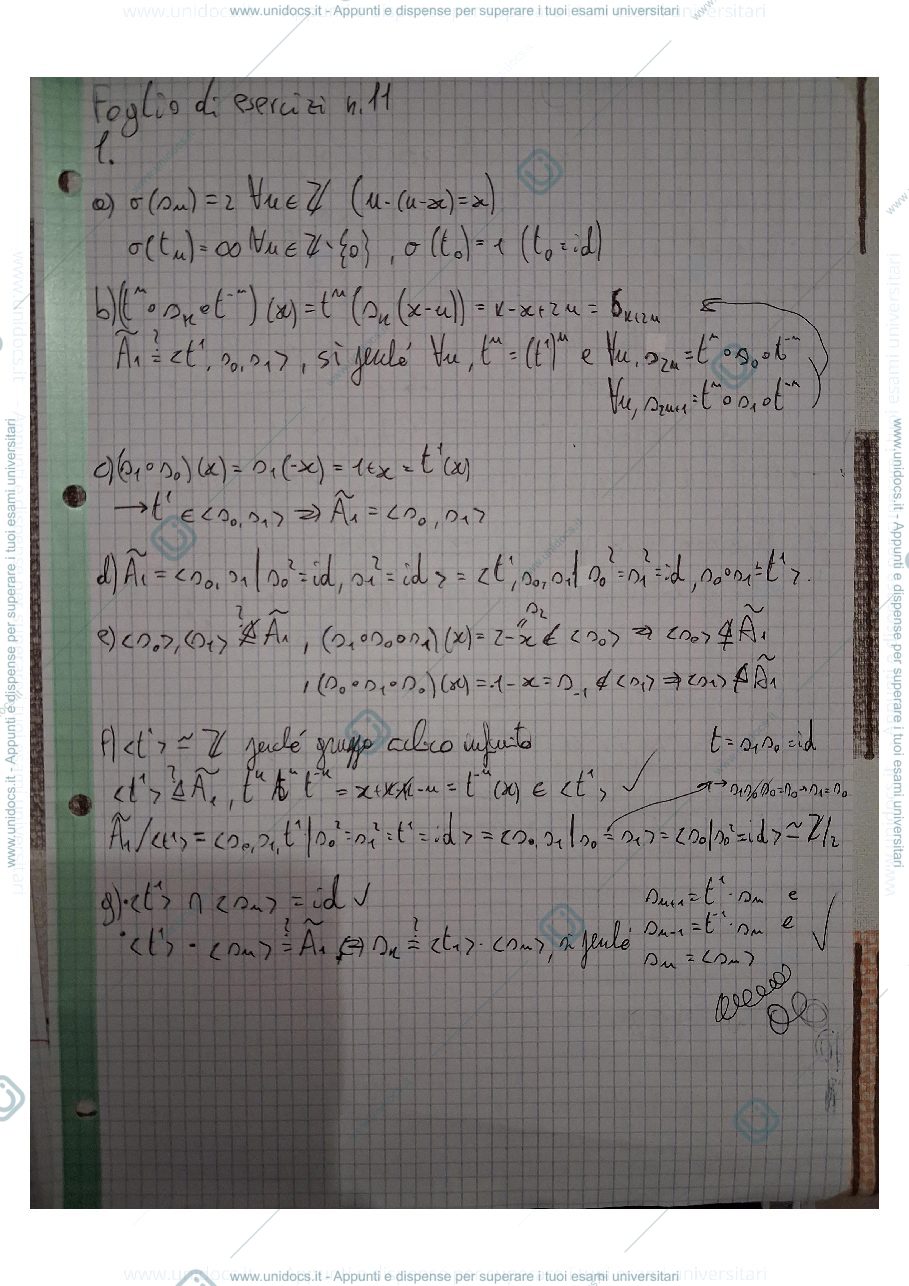 www.unidocs.it - Appunti e dispense per superare i tuoi esami universitari
Foglio di esercizi n.11
1.
a) σ(s_n) = 2 ∀n ∈ ℤ (n-(n-x)=x)
σ(t_n) = ∞ ∀n ∈ ℤ∖{0}, σ(t_0) = 1 (t_0 = id)
b) (t^n ∘ s_k ∘ t^-n)(x) = t^n(s_k(x-n)) = k-x+2n = s_k+2n
Ã_1 ≟ <t^1, s_0, s_1>, sì perché ∀n, t^n = (t^1)^n e ∀n, s_2n = t^n ∘ s_0 ∘ t^-n
∀n, s_2n+1 = t^n ∘ s_1 ∘ t^-n
c) (s_1 ∘ s_0)(x) = s_1(-x) = 1+x = t^1(x)
→ t^1 ∈ <s_0, s_1> ⇒ Ã_1 = <s_0, s_1>
d) Ã_1 = <s_0, s_1 | s_0^2 = id, s_1^2 = id> = <t^1, s_0, s_1 | s_0^2 = s_1^2 = id, s_0 ∘ s_1 = t^1>.
e) <s_0>, <s_1> ⋬ Ã_1, (s_1 ∘ s_0 ∘ s_1)(x) = 2-x = s_2 ∉ <s_0> ⇒ <s_0> ⋬ Ã_1
, (s_0 ∘ s_1 ∘ s_0)(x) = -1-x = s_-1 ∉ <s_1> ⇒ <s_1> ⋬ Ã_1
f) <t^1> ≃ ℤ perché gruppo ciclico infinito
t = s_1 s_0 = id
<t^1> ⊴ Ã_1, t^n t^-n = t^-n(x) ∈ <t^1> ✓
Ã_1/<t^1> = <s_0, s_1, t^1 | s_0^2 = s_1^2 = t^1 = id> = <s_0, s_1 | s_0 = s_1> = <s_0 | s_0^2 = id> ≃ ℤ/2
g) • <t^1> ∩ <s_n> = id ✓
• <t^1> · <s_n> ≟ Ã_1 ⇔ s_k ≟ <t_1> · <s_n>, sì perché
s_n+1 = t^1 · s_n e
s_n-1 = t^-1 · s_n e
s_n = <s_n> ✓
www.unidocs.it - Appunti e dispense per superare i tuoi esami universitari